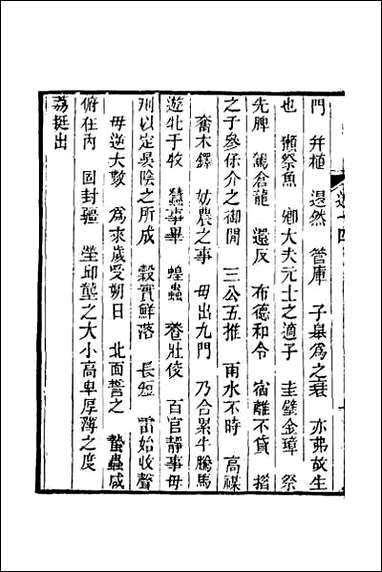 門 并植 退然 管庫 子皋爲之衰 亦弗故生
也 獺祭魚 卿大夫元士之適子 圭璧金璋 祭
先脾 駕倉龍 還反 布德和令 宿離不貸 措
之于參保介之御閒 三公五推 雨水不時 高禖
奮木鐸 妨農之事 毋出九門 乃合累牛騰馬
遊牝于牧 蠶事畢 蝗蟲 養壯佼 百官靜事毋
刑以定晏陰之所成 穀實鮮落 長短 雷始收聲
毋逆大數 爲來歲受朔日 北面誓之 蟄蟲咸
俯在內 固封疆 塋邱壟之大小高卑厚薄之度
荔挺出